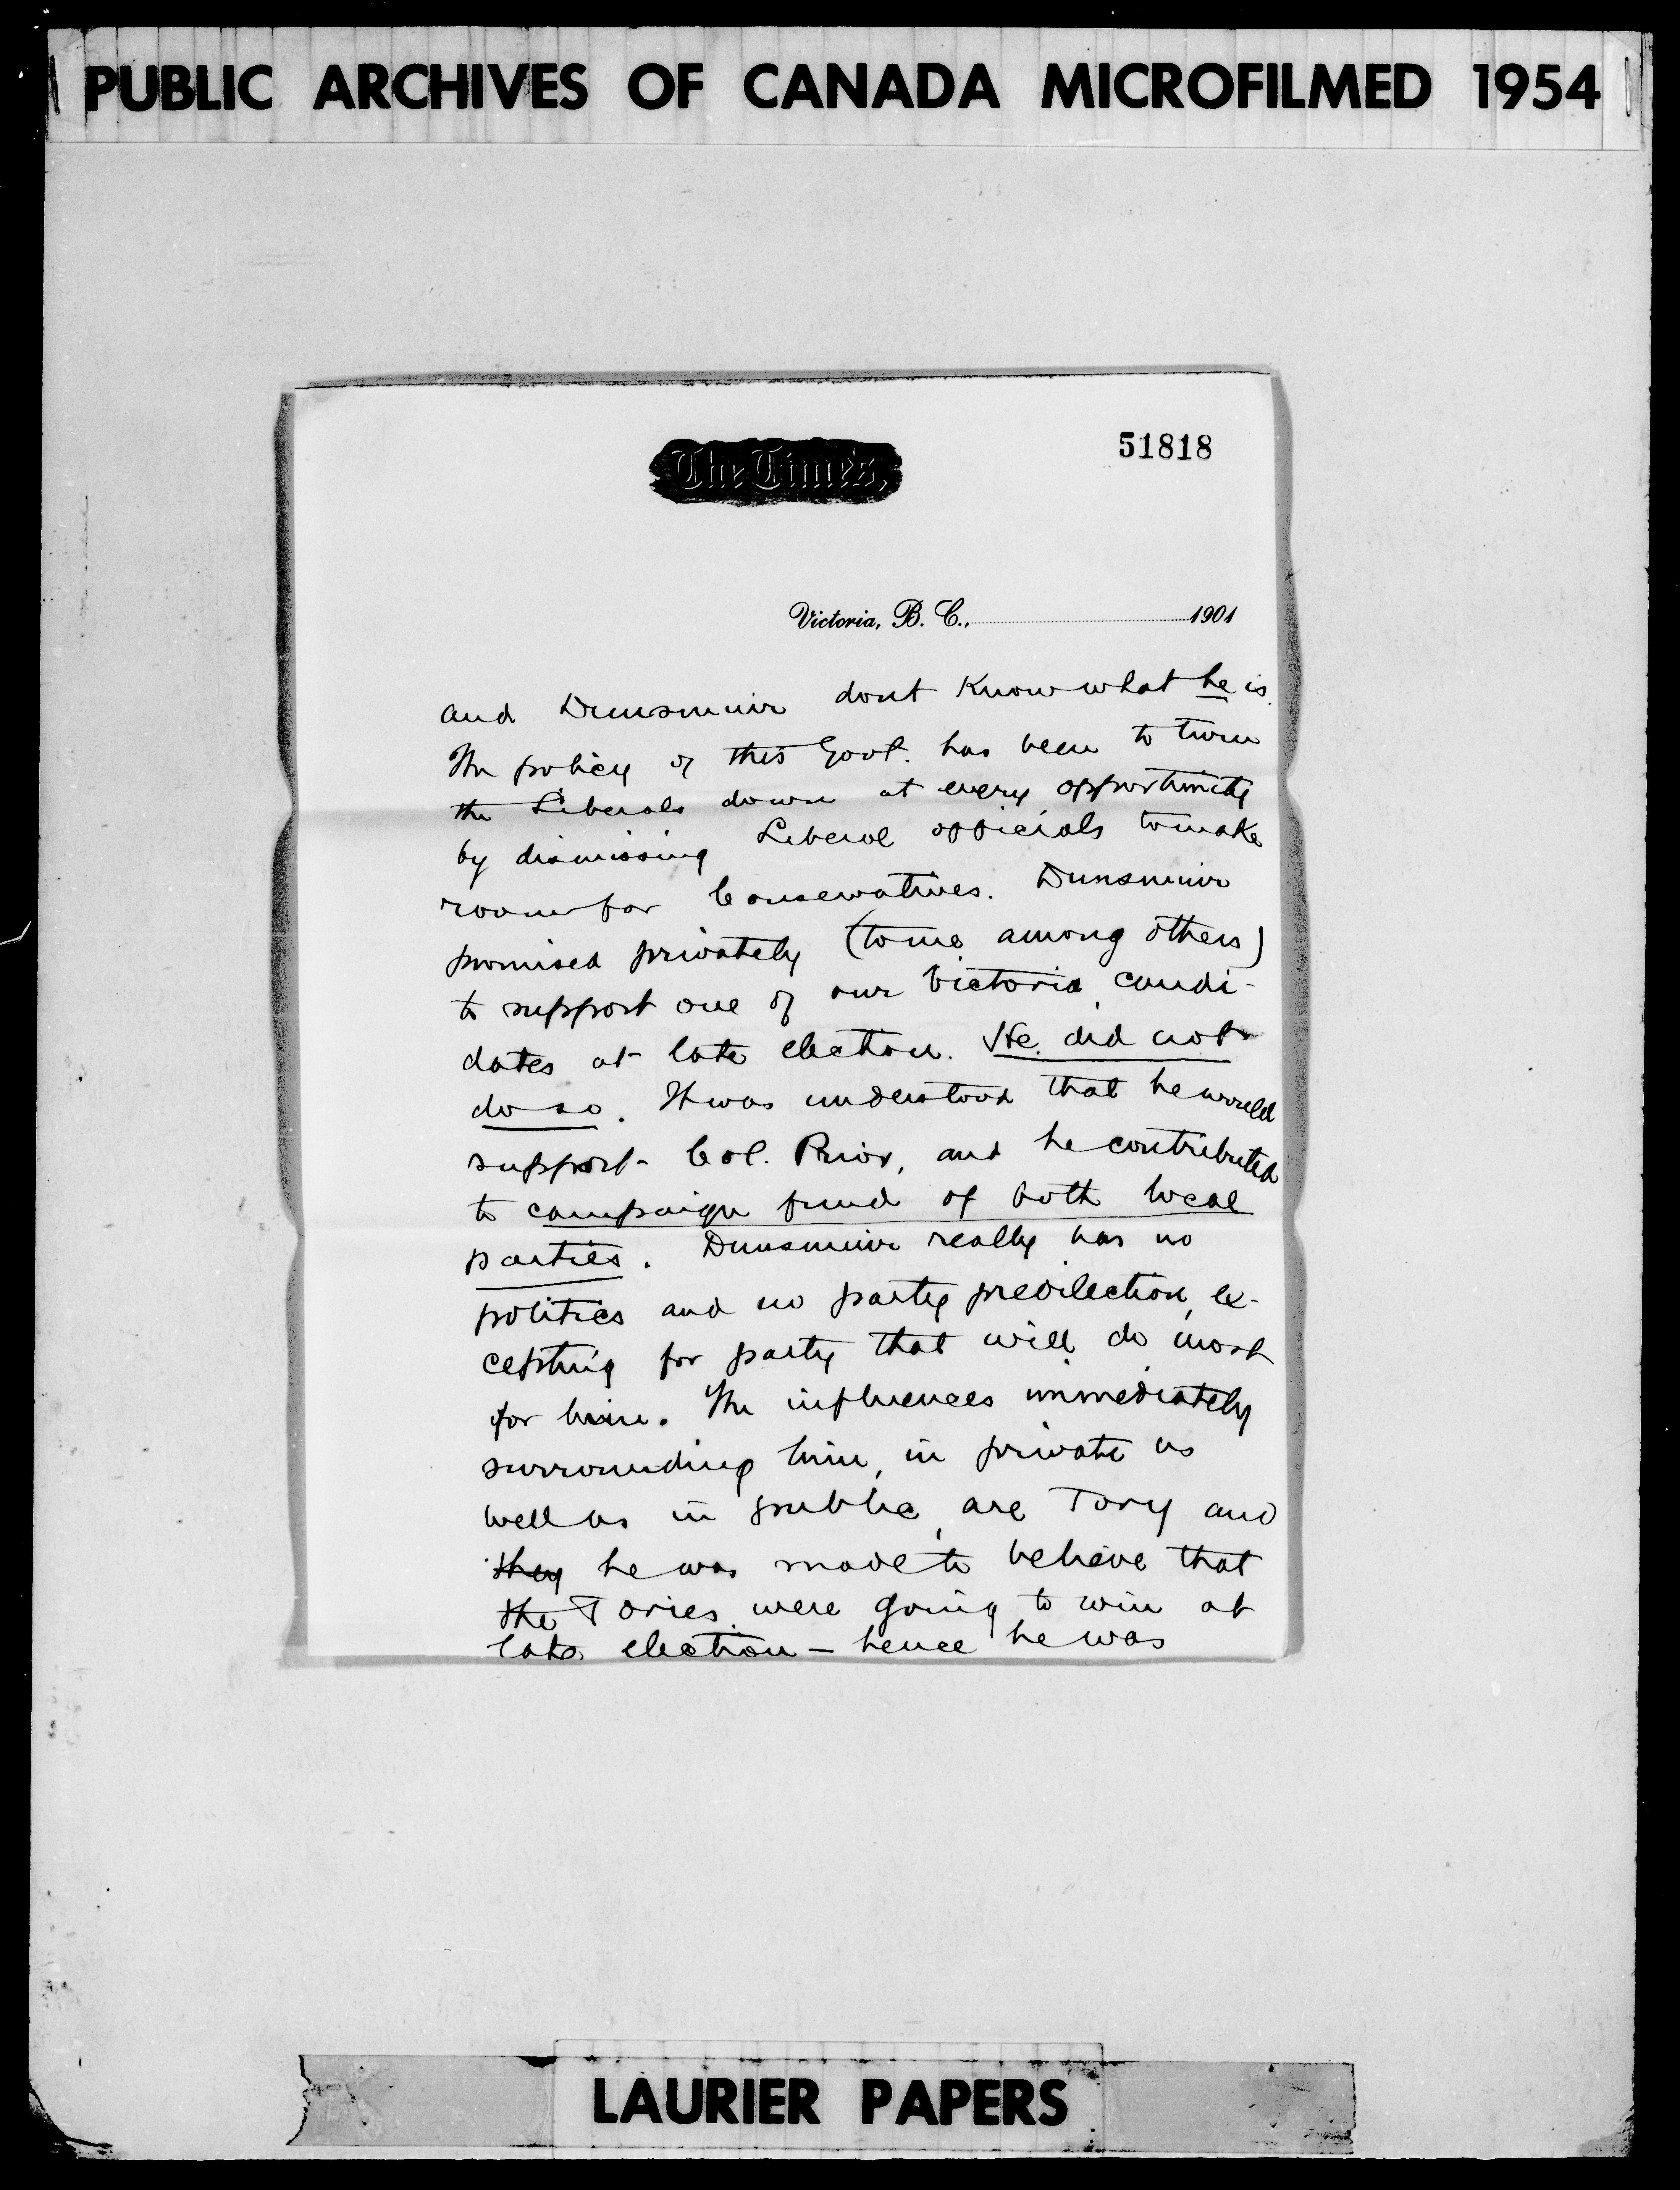 PUBLIC ARCHIVES OF CANADA MICROFILMED 1954
51818
The Times,
Victoria, B. C., 1901
and Dunsmuir dont know what he is.
The policy of this Govt. has been to turn
the Liberals down at every opportunity
by dismissing Liberal officials to make
room for Conservatives. Dunsmuir
promised privately (to me among others)
to support one of our Victoria candi-
dates at late election. He did not
do so. It was understood that he would
support Col. Prior, and he contributed
to campaign fund of both local
parties. Dunsmuir really has no
politics and no party predilection, ex-
cepting for party that will do most
for him. The influences immediately
surrounding him, in private as
well as in public, are Tory and
they he was made to believe that
the Tories were going to win at
late election — hence he was
LAURIER PAPERS